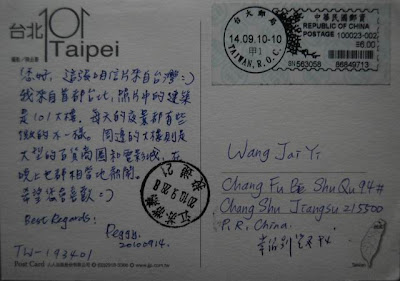 台北101
Taipei
您好，這張明信片來自台灣:)
我來自首都台北，照片中的建築
是101大樓。每天的夜景都有些
微的不一樣。周邊的大樓則及
大型的百貨商圈和電影城，在
晚上也都相當地熱鬧。
希望您喜歡:)
Best Regards:
Peggy.
20100914.
TW-193401
Post Card
台大郵局
14.09.10-10
甲1
TAIWAN, R.O.C.
中華民國郵資
REPUBLIC OF CHINA
POSTAGE 100023-002
$6.00
SN563058 86849713
江苏常熟
2010.9.20.8
Wang Jai Yi
Chang Fu Lu Shu Qu 94#
Chang Shu Jiangsu 215500
P.R. China.
Taiwan